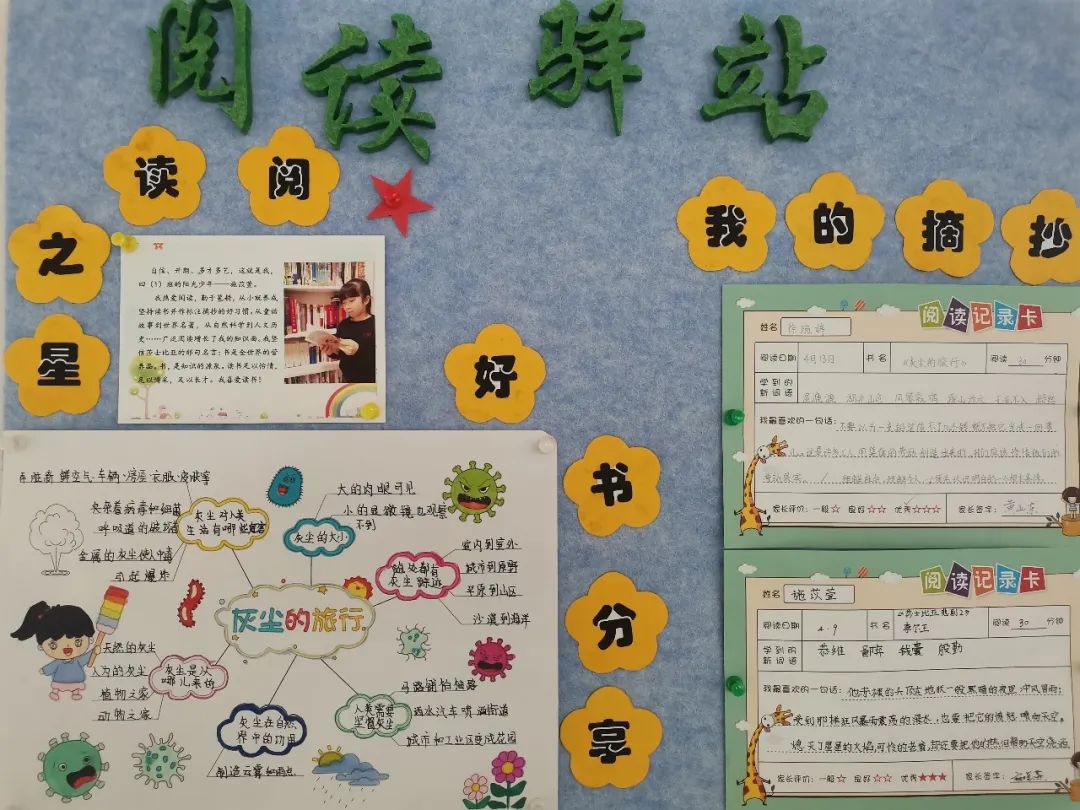 阅读驿站
阅读
之星
自信、开朗、多才多艺，这就是我，
四（1）班的阳光少年——施苡萱。
我热爱阅读，勤于墓耕，从小就养成
坚持读书并作标注摘抄的好习惯。从童话
故事到世界名著，从自然科学到人文历
史……广泛阅读增长了我的知识面。我坚
信莎士比亚的那句名言：书是全世界的营
养品。书，是知识的源泉。读书足以怡情，
足以博采，足以长才。我喜爱读书！
好书分享
灰尘的旅行
灰尘对人类
生活有哪些危害
弄脏新鲜空气、车辆、房屋、衣服、皮肤等
夹带着病毒和细菌
呼吸道的破坏者
金属的灰尘使人中毒
引起爆炸
灰尘的大小
大的肉眼可见
小的显微镜也观察
不到
随处都有
灰尘踪迹
室内到室外
城市到原野
平原到山区
沙漠到海洋
灰尘是从
哪儿来的
天然的灰尘
人为的灰尘
植物之家
动物之家
灰尘在自然
界中的功用
制造云雾和雨点
人类需要
掌握灰尘
马路铺柏油路
洒水汽车喷洒街道
城市和工业区变成花园
我的摘抄
阅读记录卡
姓名
阅读日期 4月13日 书名 《灰尘的旅行》 阅读 30 分钟
学到的
新词语
我最喜欢的一句话：
家长评价：一般☆ 良好☆☆ 优秀☆☆☆ 家长签字：
阅读记录卡
姓名 施苡萱
阅读日期 4.9 书名 莎士比亚悲剧 李尔王 阅读 30 分钟
学到的
新词语 恭维 鄙弃 钱囊 殷勤
我最喜欢的一句话：
家长评价：一般☆ 良好☆☆ 优秀★★★ 家长签字：